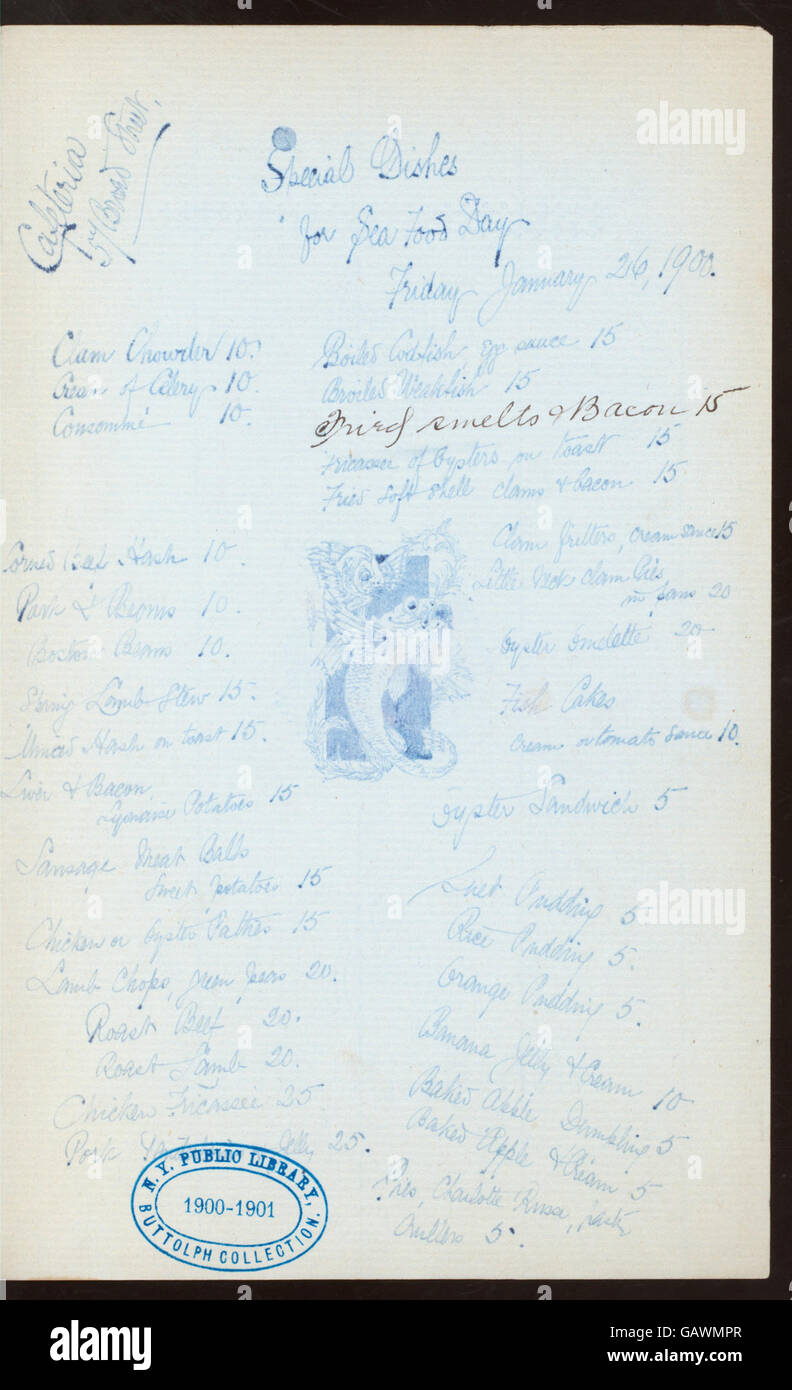 Cafeteria
57 Broad Street.
Special Dishes
for Sea Food Day
Friday January 26, 1900.
Clam Chowder 10.
Cream of Celery 10.
Consommé 10.
Boiled Codfish, Egg sauce 15
Broiled Weakfish 15
Fried smelts & Bacon 15
Fricassee of Oysters on toast 15
Fried Soft Shell Clams & bacon 15
Corned Beef Hash 10.
Pork & Beans 10.
Boston Beans 10.
Spring Lamb Stew 15.
Minced Hash on toast 15.
Liver & Bacon,
Lyonaise Potatoes 15
Sausage Meat Balls
Sweet potatoes 15
Chicken or Oyster Patties 15
Lamb Chops, green peas 20.
Roast Beef 20.
Roast Lamb 20.
Chicken Fricassee 25
Pork Jelly 25.
Clam fritters, cream sauce 15
Little Neck Clam Pies,
20
Oyster Omelette 20
Fish Cakes
cream or tomato sauce 10.
Oyster Sandwich 5
Suet Pudding 5
Rice Pudding 5.
Orange Pudding 5.
Banana Jelly & Cream 10
Baked Apple Dumpling 5
Baked Apple & Cream 5
Pies, Charlotte Russe,
Crullers 5.
N. Y. PUBLIC LIBRARY,
1900-1901
BUTTOLPH COLLECTION.
alamy
alamy
alamy
a
a
alamy
Image ID: GAWMPR
www.alamy.com